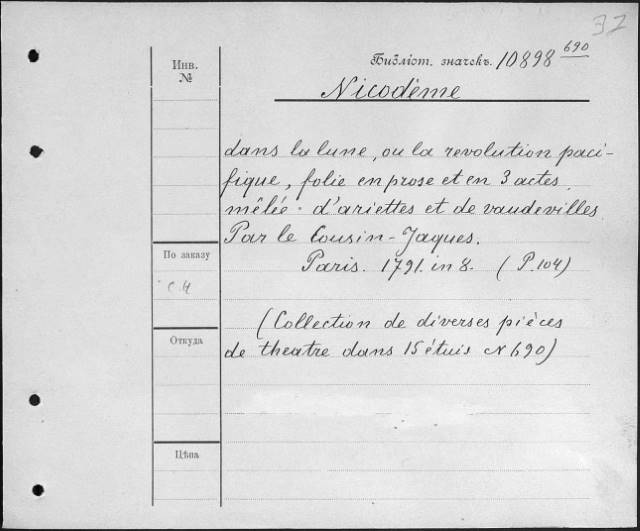 37
Инв. №
Библіот. значекъ. 10898 690
Nicodème
dans la lune, ou la revolution paci-
fique, folie en prose et en 3 actes,
mêlée d'ariettes et de vaudevilles.
Par le Cousin-Jaques.
По заказу
Paris. 1791. in 8. (P. 104)
с.н
(Collection de diverses pièces
Откуда
de theatre dans 15 étuis N 690)
Цѣна